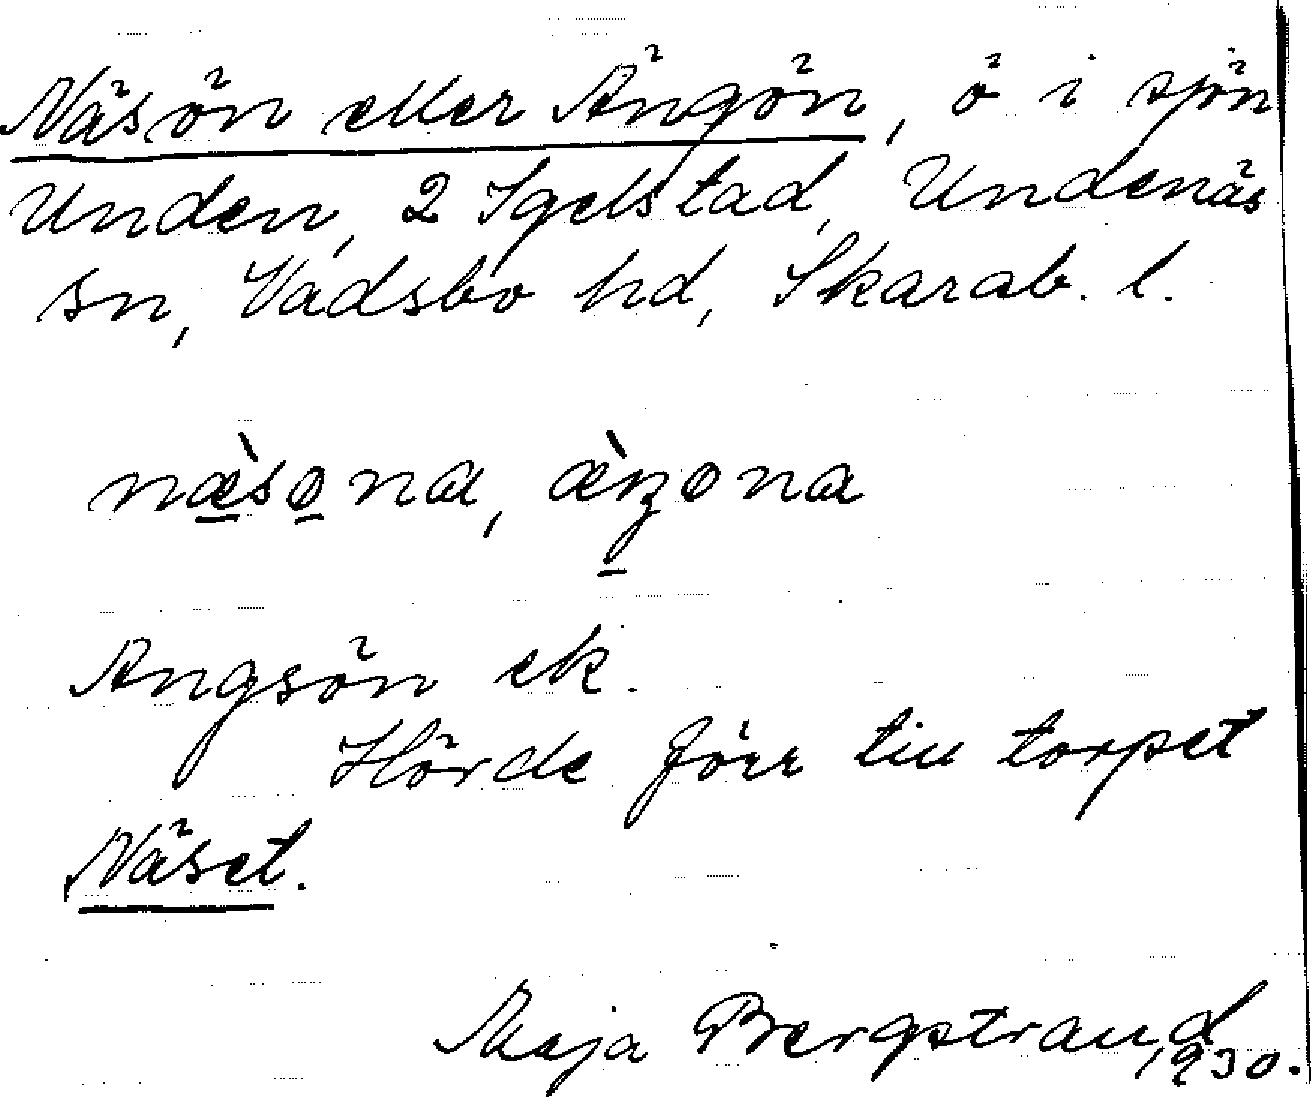 Näsön eller Ängön, ö i sjön
Unden, 2 Igelstad, Undenäs
sn, Vadsbo hd, Skarab. l.
næ̀sǫna, æ̀ŋǫna
Ängsön ek.
Hörde förr till torpet
Näset.
Maja Bergstrand
1930.